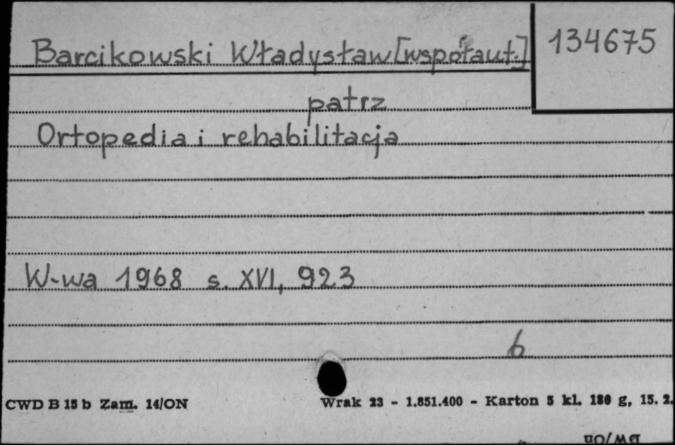 Barcikowski Władysław [współaut.] 134675
patrz
Ortopedia i rehabilitacja
W-wa 1968 s. XVI, 923
6
CWD B 15 b Zam. 14/ON Wrak 23 - 1.851.400 - Karton 5 kl. 180 g, 15. 2.